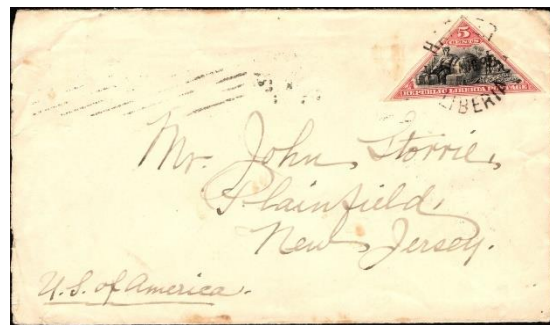 5
CENTS
REPUBLIC LIBERIA POSTAGE
LIBERIA
Mr. John Storrie,
Plainfield,
New Jersey.
U.S. of America.